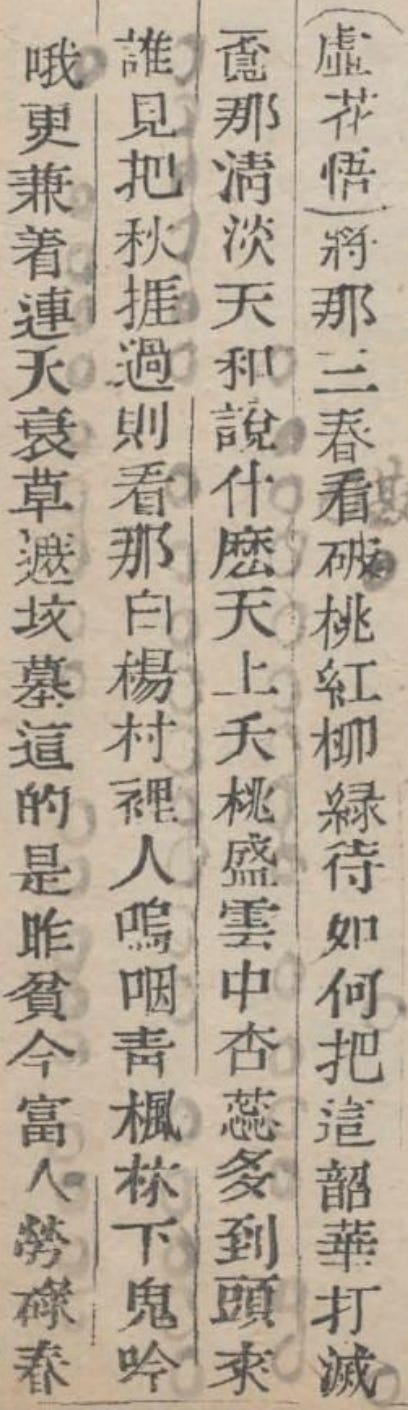 （虛花悟）將那三春看破桃紅柳綠待如何把這韶華打滅
覔那清淡天和說什麽天上夭桃盛雲中杏蕊多到頭來
誰見把秋捱過則看那白楊村裡人嗚咽青楓林下鬼吟
哦更兼着連天衰草遮坟墓這的是昨貧今富人勞碌春